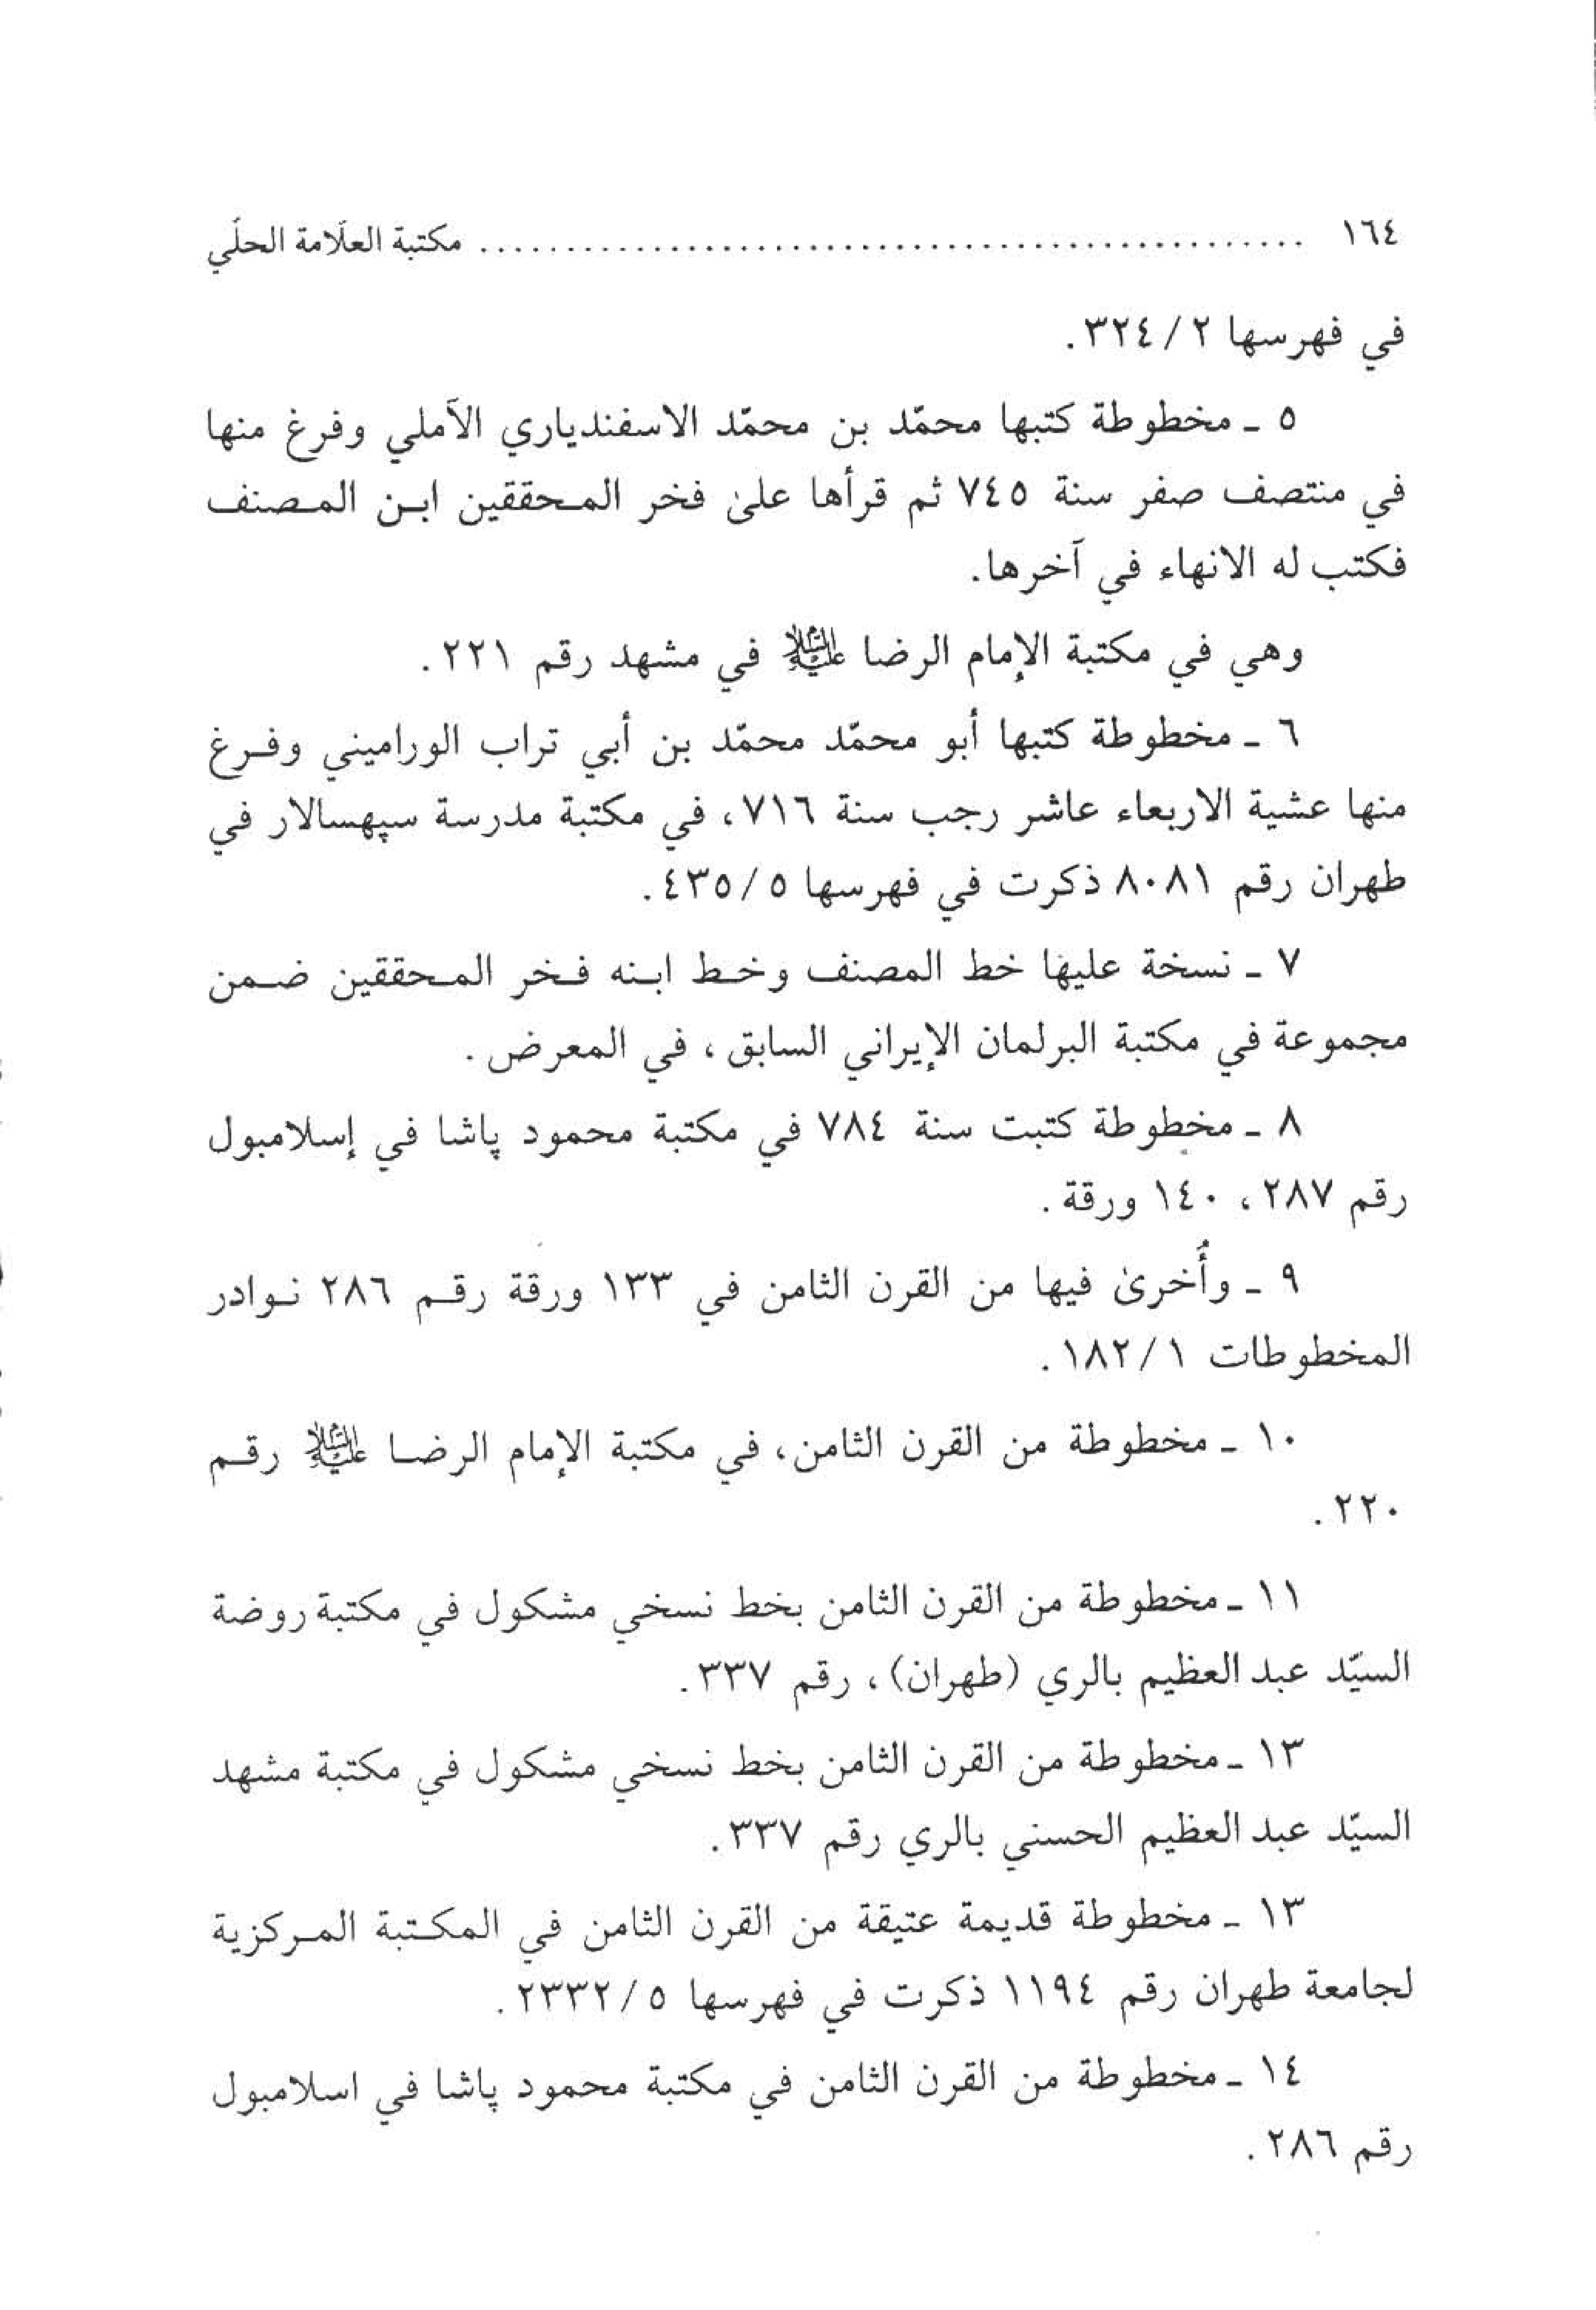 ١٦٤ ................................................ مكتبة العلّامة الحلّي
في فهرسها ٢ / ٣٢٤.
٥ ـ مخطوطة كتبها محمّد بن محمّد الاسفندياري الآملي وفرغ منها
في منتصف صفر سنة ٧٤٥ ثم قرأها علىٰ فخر المحققين ابن المصنف
فكتب له الانهاء في آخرها.
وهي في مكتبة الإمام الرضا عليه السلام في مشهد رقم ٢٢١.
٦ ـ مخطوطة كتبها أبو محمّد محمّد بن أبي تراب الوراميني وفرغ
منها عشية الاربعاء عاشر رجب سنة ٧١٦، في مكتبة مدرسة سپهسالار في
طهران رقم ٨٠٨١ ذكرت في فهرسها ٥ / ٤٣٥.
٧ ـ نسخة عليها خط المصنف وخط ابنه فخر المحققين ضمن
مجموعة في مكتبة البرلمان الإيراني السابق، في المعرض.
٨ ـ مخطوطة كتبت سنة ٧٨٤ في مكتبة محمود پاشا في إسلامبول
رقم ٢٨٧، ١٤٠ ورقة.
٩ ـ وأُخرىٰ فيها من القرن الثامن في ١٣٣ ورقة رقم ٢٨٦ نوادر
المخطوطات ١ / ١٨٢.
١٠ ـ مخطوطة من القرن الثامن، في مكتبة الإمام الرضا عليه السلام رقم
٢٢٠.
١١ ـ مخطوطة من القرن الثامن بخط نسخي مشكول في مكتبة روضة
السيّد عبد العظيم بالري (طهران)، رقم ٣٣٧.
١٣ ـ مخطوطة من القرن الثامن بخط نسخي مشكول في مكتبة مشهد
السيّد عبد العظيم الحسني بالري رقم ٣٣٧.
١٣ ـ مخطوطة قديمة عتيقة من القرن الثامن في المكتبة المركزية
لجامعة طهران رقم ١١٩٤ ذكرت في فهرسها ٥ / ٢٣٣٢.
١٤ ـ مخطوطة من القرن الثامن في مكتبة محمود پاشا في اسلامبول
رقم ٢٨٦.